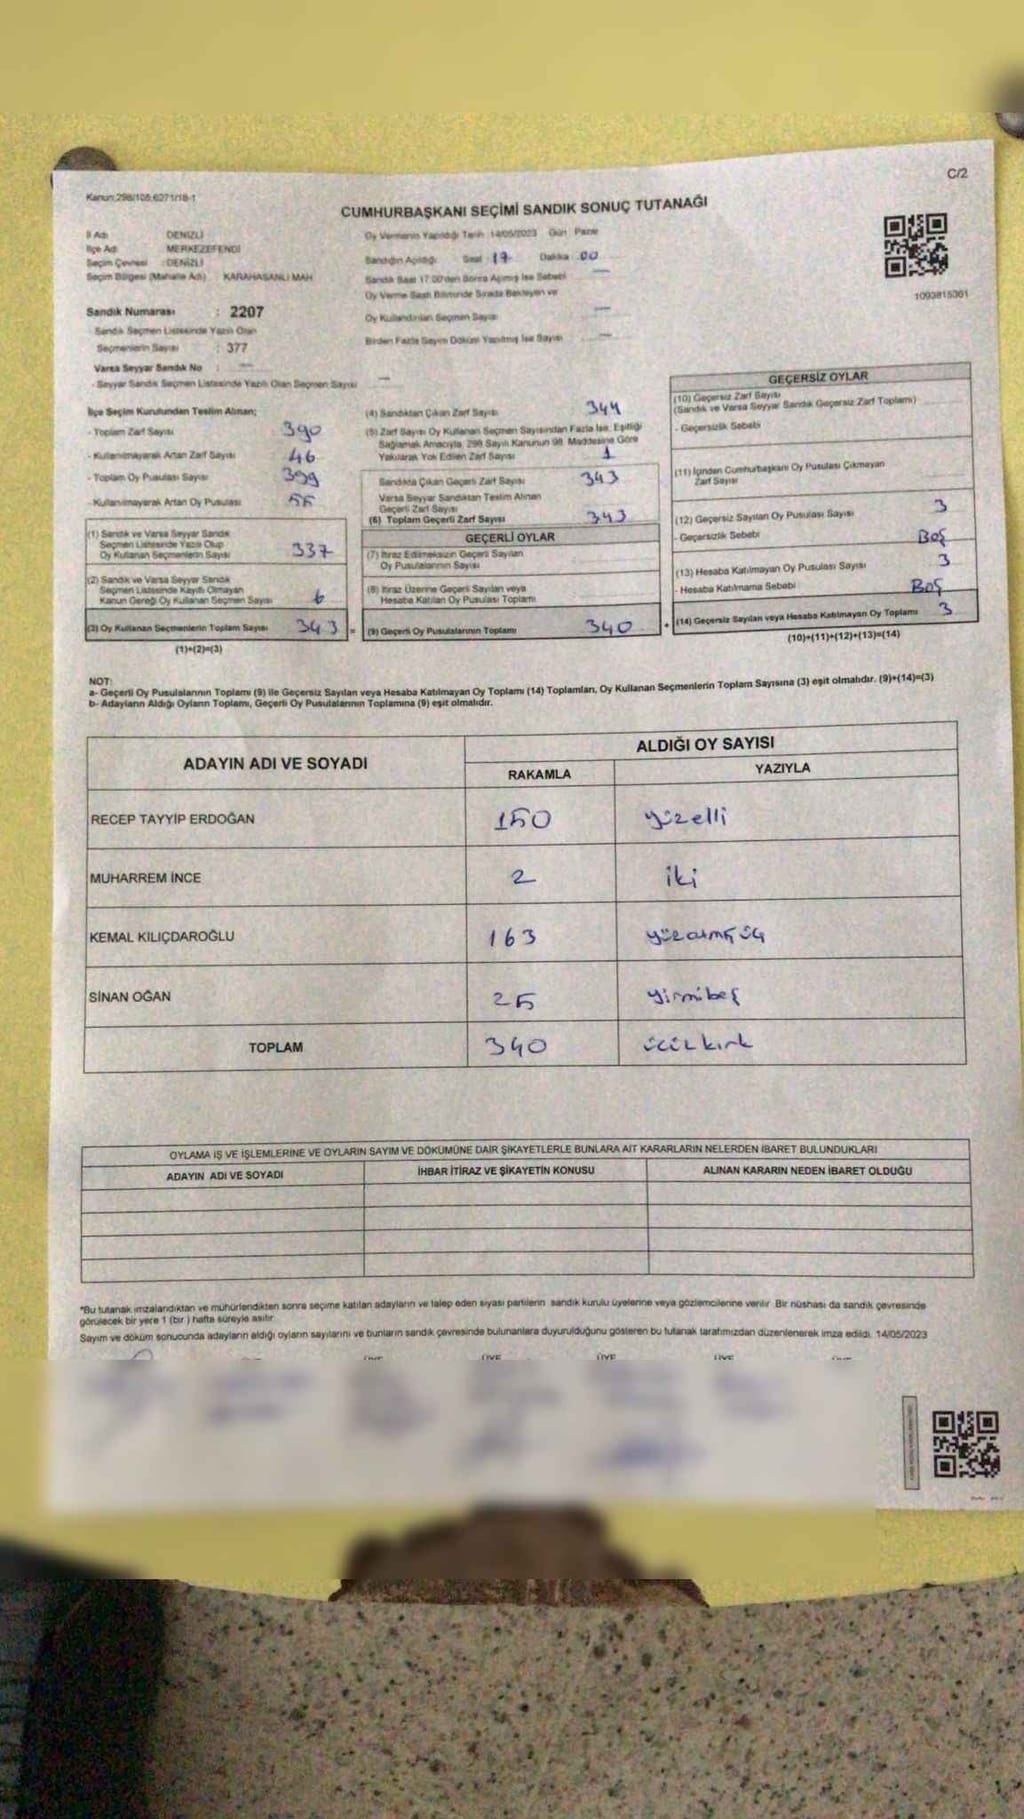 C/2
Kanun:298/105;6271/18-1
CUMHURBAŞKANI SEÇİMİ SANDIK SONUÇ TUTANAĞI
İl Adı DENİZLİ
İlçe Adı MERKEZEFENDİ
Seçim Çevresi : DENİZLİ
Seçim Bölgesi (Mahalle Adı) KARAHASANLI MAH
Sandık Numarası : 2207
Sandık Seçmen Listesinde Yazılı Olan
Seçmenlerin Sayısı : 377
Varsa Seyyar Sandık No : —
- Seyyar Sandık Seçmen Listesinde Yazılı Olan Seçmen Sayısı —
Oy Vermenin Yapıldığı Tarih 14/05/2023 Gün Pazar
Sandığın Açıldığı Saat 17 Dakika 00
Sandık Saat 17.00'den Sonra Açılmış İse Sebebi —
Oy Verme Saati Bitiminde Sırada Bekleyen ve
Oy Kullandırılan Seçmen Sayısı —
Birden Fazla Sayım Döküm Yapılmış İse Sayısı —
1093815361
İlçe Seçim Kurulundan Teslim Alınan;
- Toplam Zarf Sayısı 390
- Kullanılmayarak Artan Zarf Sayısı 46
- Toplam Oy Pusulası Sayısı 399
- Kullanılmayarak Artan Oy Pusulası 55
(1) Sandık ve Varsa Seyyar Sandık
Seçmen Listesinde Yazılı Olup
Oy Kullanan Seçmenlerin Sayısı 337
(2) Sandık ve Varsa Seyyar Sandık
Seçmen Listesinde Kayıtlı Olmayan
Kanun Gereği Oy Kullanan Seçmen Sayısı 6
(3) Oy Kullanan Seçmenlerin Toplam Sayısı 343 =
(1)+(2)=(3)
(4) Sandıktan Çıkan Zarf Sayısı 344
(5) Zarf Sayısı Oy Kullanan Seçmen Sayısından Fazla İse, Eşitliği
Sağlamak Amacıyla, 298 Sayılı Kanunun 98. Maddesine Göre
Yakılarak Yok Edilen Zarf Sayısı 1
Sandıkta Çıkan Geçerli Zarf Sayısı 343
Varsa Seyyar Sandıktan Teslim Alınan
Geçerli Zarf Sayısı
(6) Toplam Geçerli Zarf Sayısı 343
GEÇERLİ OYLAR
(7) İtiraz Edilmeksizin Geçerli Sayılan
Oy Pusulalarının Sayısı
(8) İtiraz Üzerine Geçerli Sayılan veya
Hesaba Katılan Oy Pusulası Toplamı
(9) Geçerli Oy Pusulalarının Toplamı 340 +
GEÇERSİZ OYLAR
(10) Geçersiz Zarf Sayısı
(Sandık ve Varsa Seyyar Sandık Geçersiz Zarf Toplamı)
- Geçersizlik Sebebi
(11) İçinden Cumhurbaşkanı Oy Pusulası Çıkmayan
Zarf Sayısı
(12) Geçersiz Sayılan Oy Pusulası Sayısı 3
- Geçersizlik Sebebi Boş
(13) Hesaba Katılmayan Oy Pusulası Sayısı 3
- Hesaba Katılmama Sebebi Boş
(14) Geçersiz Sayılan veya Hesaba Katılmayan Oy Toplamı 3
(10)+(11)+(12)+(13)=(14)
NOT:
a- Geçerli Oy Pusulalarının Toplamı (9) ile Geçersiz Sayılan veya Hesaba Katılmayan Oy Toplamı (14) Toplamları, Oy Kullanan Seçmenlerin Toplam Sayısına (3) eşit olmalıdır. (9)+(14)=(3)
b- Adayların Aldığı Oyların Toplamı, Geçerli Oy Pusulalarının Toplamına (9) eşit olmalıdır.
ADAYIN ADI VE SOYADI
ALDIĞI OY SAYISI
RAKAMLA YAZIYLA
RECEP TAYYİP ERDOĞAN 150 yüzelli
MUHARREM İNCE 2 iki
KEMAL KILIÇDAROĞLU 163 yüzatmşüç
SİNAN OĞAN 25 yirmibeş
TOPLAM 340 üçüzkırk
OYLAMA İŞ VE İŞLEMLERİNE VE OYLARIN SAYIM VE DÖKÜMÜNE DAİR ŞİKAYETLERLE BUNLARA AİT KARARLARIN NELERDEN İBARET BULUNDUKLARI
ADAYIN ADI VE SOYADI İHBAR İTİRAZ VE ŞİKAYETİN KONUSU ALINAN KARARIN NEDEN İBARET OLDUĞU
*Bu tutanak imzalandıktan ve mühürlendikten sonra seçime katılan adayların ve talep eden siyasi partilerin sandık kurulu üyelerine veya gözlemcilerine verilir. Bir nüshası da sandık çevresinde
görülecek bir yere 1 (bir) hafta süreyle asılır.
Sayım ve döküm sonucunda adayların aldığı oyların sayılarını ve bunların sandık çevresinde bulunanlara duyurulduğunu gösteren bu tutanak tarafımızdan düzenlenerek imza edildi. 14/05/2023
ÜYE ÜYE ÜYE ÜYE